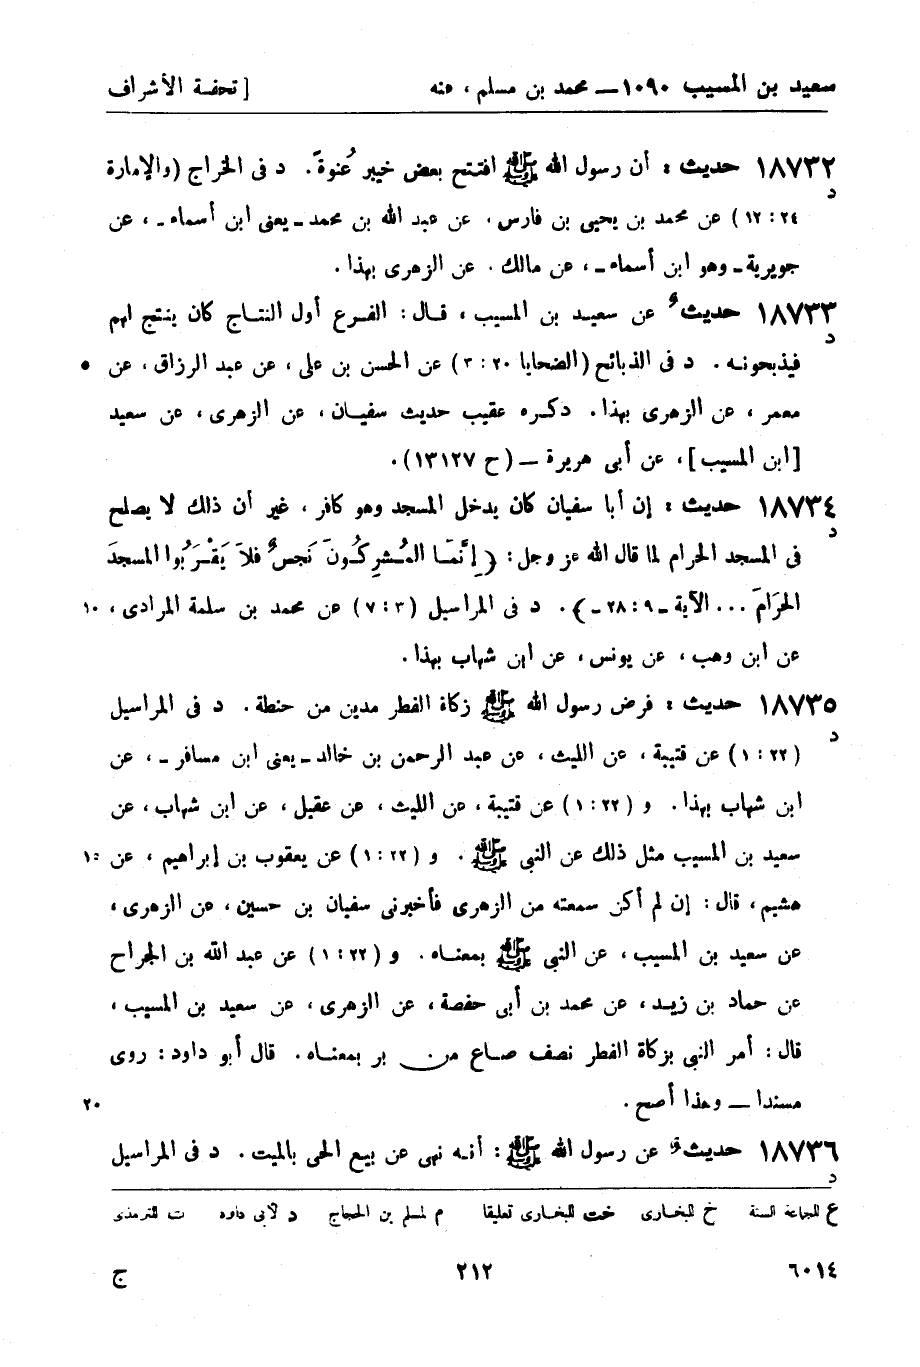 سعيد بن المسيب ١٠٩٠ — محمد بن مسلم ، عنه [ تحفة الأشراف
١٨٧٣٢ حديث : أن رسول الله ﷺ افتتح بعض خيبر عُنوةً . د فى الخراج (والإمارة
د
٢٤ : ١٢) عن محمد بن يحيى بن فارس ، عن عبد الله بن محمد ـ يعنى ابن أسماء ـ ، عن
جويرية ـ وهو ابن أسماء ـ ، عن مالك . عن الزهرى بهذا .
١٨٧٣٣ حديث عن سعيد بن المسيب ، قال : الفرع أول النتاج كان ينتج لهم
د
فيذبحونه . د فى الذبائح (الضحايا ٢٠ : ٣) عن الحسن بن على ، عن عبد الرزاق ، عن ٥
معمر ، عن الزهرى بهذا . ذكره عقيب حديث سفيان ، عن الزهرى ، عن سعيد
[ابن المسيب] ، عن أبى هريرة — (ح ١٣١٢٧) .
١٨٧٣٤ حديث : إن أبا سفيان كان يدخل المسجد وهو كافر ، غير أن ذلك لا يصلح
د
فى المسجد الحرام لما قال الله عز وجل : ﴿ إِنَّمَا المُشرِكُونَ نَجَسٌ فلاَ يَقْرَبُوا المسجدَ
الحَرَامَ ... الآية ـ ٩ : ٢٨ ـ ﴾ . د فى المراسيل (٣ : ٧) عن محمد بن سلمة المرادى ، ١٠
عن ابن وهب ، عن يونس ، عن ابن شهاب بهذا .
١٨٧٣٥ حديث : فرض رسول الله ﷺ زكاة الفطر مدين من حنطة . د فى المراسيل
د
(٢٢ : ١) عن قتيبة ، عن الليث ، عن عبد الرحمن بن خالد ـ يعنى ابن مسافر ـ ، عن
ابن شهاب بهذا . و (٢٢ : ١) عن قتيبة ، عن الليث ، عن عقيل ، عن ابن شهاب ، عن
سعيد بن المسيب مثل ذلك عن النبى ﷺ . و (٢٢ : ١) عن يعقوب بن إبراهيم ، عن ١٥
هشيم ، قال : إن لم أكن سمعته من الزهرى فأخبرنى سفيان بن حسين ، عن الزهرى ،
عن سعيد بن المسيب ، عن النبى ﷺ بمعناه . و (٢٢ : ١) عن عبد الله بن الجراح
عن حماد بن زيد ، عن محمد بن أبى حفصة ، عن الزهرى ، عن سعيد بن المسيب ،
قال : أمر النبى بزكاة الفطر نصف صاع من بر بمعناه . قال أبو داود : روى
مسندا — وهذا أصح . ٢٠
١٨٧٣٦ حديث عن رسول الله ﷺ : أنه نهى عن بيع الحى بالميت . د فى المراسيل
د
ع للجماعة الستة خ للبخارى خت للبخارى تعليقا م لمسلم بن الحجاج د لأبى داود ت للترمذى
٦٠١٤ ٢١٢ ج